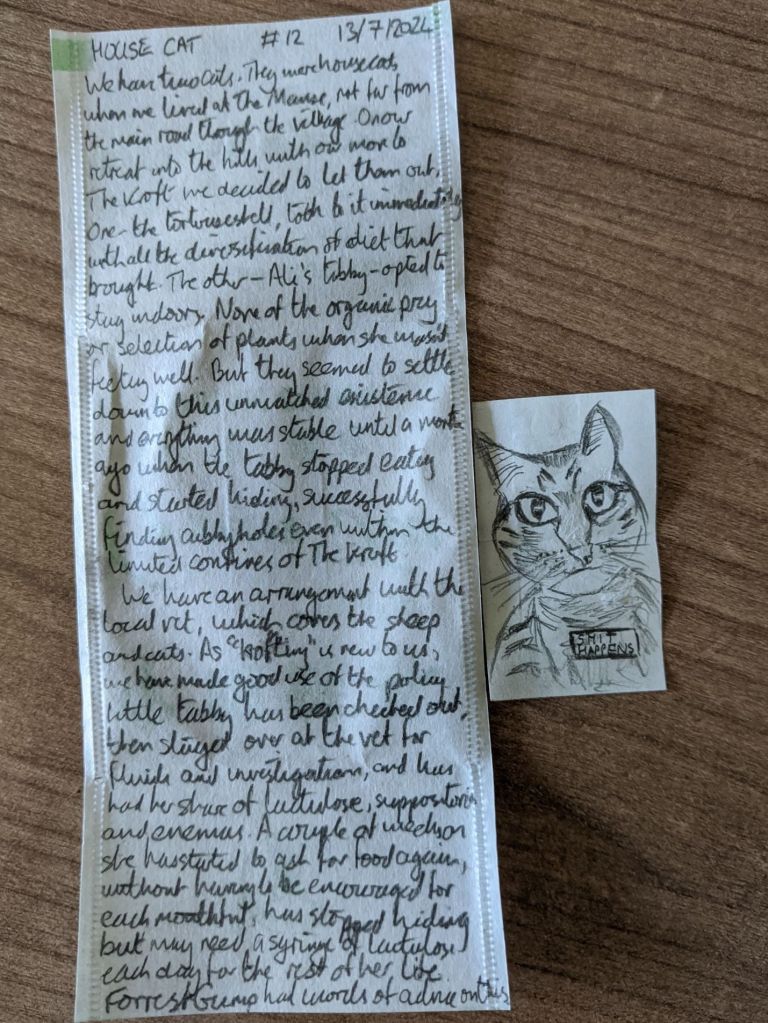 HOUSE CAT #12 13/7/2024
We have two cats. They were house cats
when we lived at The Manse, not far from
the main road though the village. On our
retreat into the hills with our move to
The Kroft we decided to let them out.
One - the tortoiseshell, took to it immediately
with all the diversification of diet that
brought. The other - Ali's tabby - opted to
stay indoors. None of the organic prey
or selection of plants when she wasn't
feeling well. But they seemed to settle
down to this unmatched existence
and everything was stable until a month
ago when the tabby stopped eating
and started hiding, successfully
finding cubbyholes even within the
limited confines of The Kroft.
We have an arrangement with the
local vet, which covers the sheep
and cats. As "krofting" is new to us,
we have made good use of the policy
little tabby has been checked out,
then stayed over at the vet for
fluids and investigation, and has
had her share of lactulose, suppositories
and enemas. A couple of weeks on
she has started to ask for food again,
without having to be encouraged for
each mouthful, has stopped hiding
but may need a syringe of lactulose
each day for the rest of her life
Forrest Gump had words of advice on this
SHIT
HAPPENS